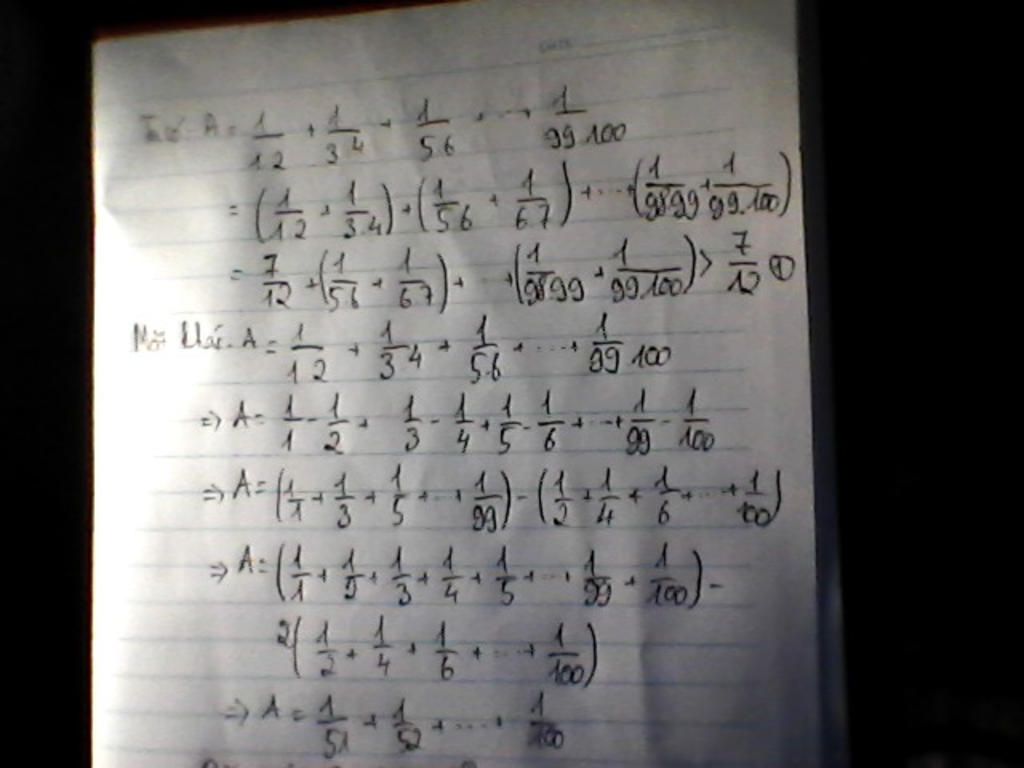 Ta có: A = 1/1.2 + 1/3.4 + 1/5.6 + ... + 1/99.100
= (1/1.2 + 1/3.4) + (1/5.6 + 1/6.7) + ... + (1/98.99 + 1/99.100)
= 7/12 + (1/5.6 + 1/6.7) + ... + (1/98.99 + 1/99.100) > 7/12 ①
Mặt khác: A = 1/1.2 + 1/3.4 + 1/5.6 + ... + 1/99.100
=> A = 1/1 - 1/2 + 1/3 - 1/4 + 1/5 - 1/6 + ... + 1/99 - 1/100
=> A = (1/1 + 1/3 + 1/5 + ... + 1/99) - (1/2 + 1/4 + 1/6 + ... + 1/100)
=> A = (1/1 + 1/2 + 1/3 + 1/4 + 1/5 + ... + 1/99 + 1/100) -
2(1/2 + 1/4 + 1/6 + ... + 1/100)
=> A = 1/51 + 1/52 + ... + 1/100